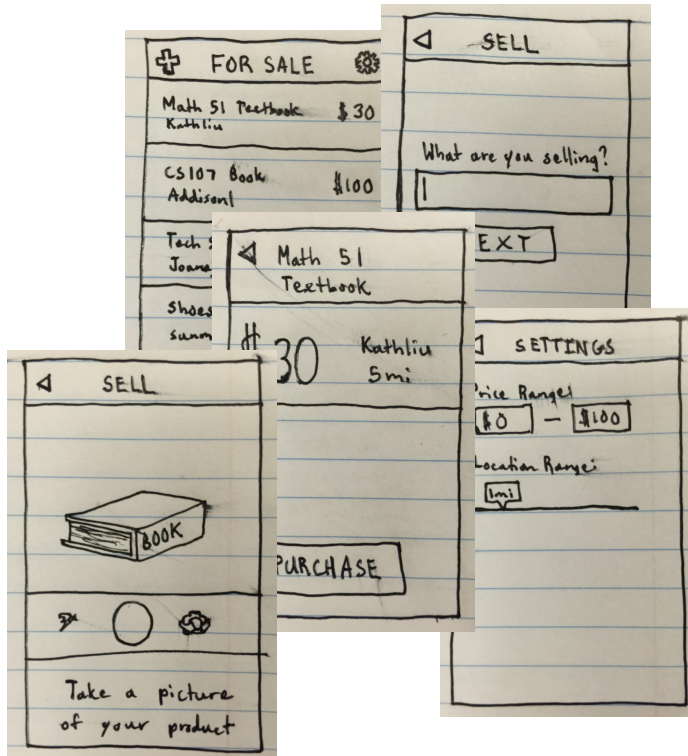 FOR SALE
Math 51 Textbook $30
Kathliu
CS107 Book $100
Addison1
Tech
Joana
Shoes
SELL
What are you selling?
EXT
Math 51
Textbook
$30 Kathliu
5mi
PURCHASE
SETTINGS
Price Range:
$0 – $100
Location Range:
1mi
SELL
BOOK
Take a picture
of your product